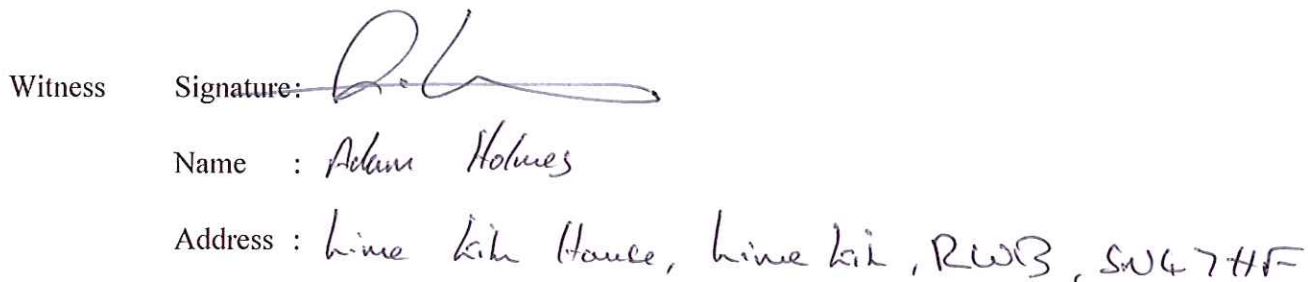 Witness Signature:
Name : Adam Holmes
Address : Lime Kiln House, Lime Kiln, RWB, SN47HF